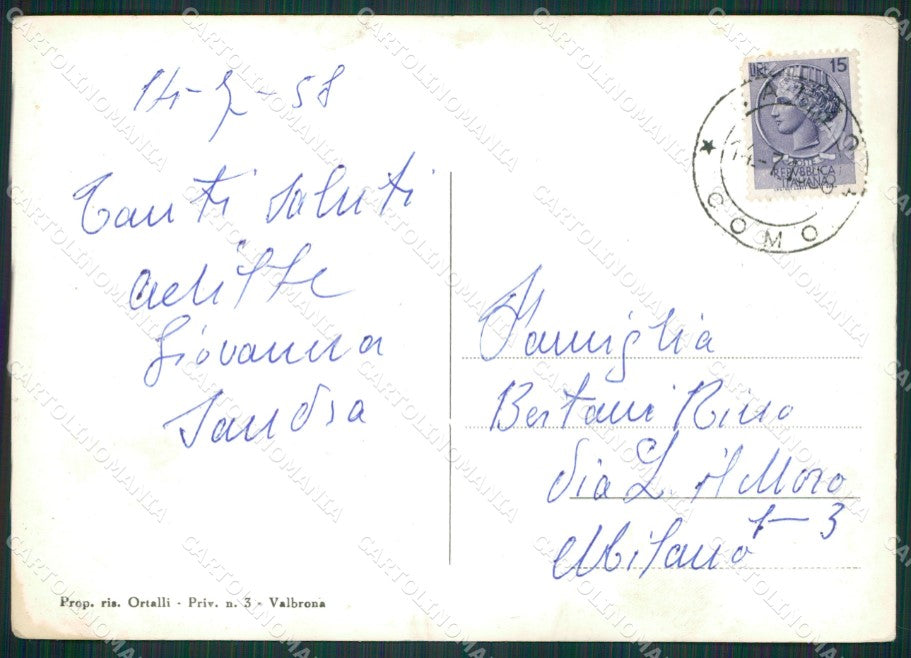 14-7-58
Tanti saluti
Giovanna
Sandra
LIRE 15
REPVBBLICA
ITALIANA
14-7
COMO
Famiglia
Bertani Rino
Via L. il Moro
Milano 3
Prop. ris. Ortalli - Priv. n. 3 - Valbrona
CARTOLINOMANIA